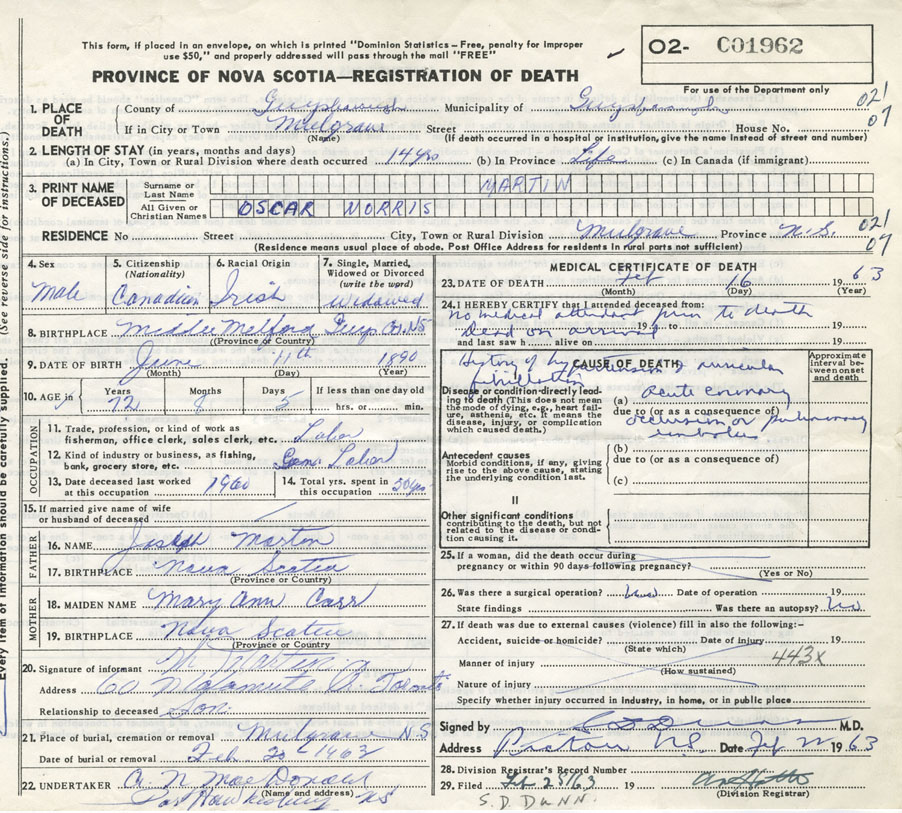 This form, if placed in an envelope, on which is printed "Dominion Statistics – Free, penalty for improper
use $50," and properly addressed will pass through the mail "FREE"
O2- C01962
PROVINCE OF NOVA SCOTIA—REGISTRATION OF DEATH
For use of the Department only
1. PLACE OF DEATH
County of Guysborough Municipality of Guysborough 021
If in City or Town Mulgrave Street House No. 07
(Name) (If death occurred in a hospital or institution, give the name instead of street and number)
2. LENGTH OF STAY (in years, months and days)
(a) In City, Town or Rural Division where death occurred 14 yrs (b) In Province Life (c) In Canada (if immigrant)
3. PRINT NAME OF DECEASED
Surname or Last Name MARTIN
All Given or Christian Names OSCAR NORRIS
RESIDENCE No Street City, Town or Rural Division Mulgrave Province N.S. 021
07
(Residence means usual place of abode. Post Office Address for residents in rural parts not sufficient)
4. Sex
Male
5. Citizenship
(Nationality)
Canadian
6. Racial Origin
Irish
7. Single, Married,
Widowed or Divorced
(write the word)
Widowed
8. BIRTHPLACE Middle Melford Guys Co. NS
(Province or Country)
9. DATE OF BIRTH June 11th 1890
(Month) (Day) (Year)
10. AGE in Years 72 Months 8 Days 5 If less than one day old
hrs. or min.
OCCUPATION
11. Trade, profession, or kind of work as
fisherman, office clerk, sales clerk, etc. Labor
12. Kind of industry or business, as fishing,
bank, grocery store, etc. Labor
13. Date deceased last worked
at this occupation 1960
14. Total yrs. spent in
this occupation 50 yrs
15. If married give name of wife
or husband of deceased
FATHER
16. NAME Joseph Martin
17. BIRTHPLACE Nova Scotia
(Province or Country)
MOTHER
18. MAIDEN NAME Mary Ann Carr
19. BIRTHPLACE Nova Scotia
(Province or Country)
20. Signature of informant Martin
Address 60 Toronto
Relationship to deceased Son
21. Place of burial, cremation or removal Mulgrave NS
Date of burial or removal Feb 20 1963
22. UNDERTAKER A. N MacDonald
(Name and address)
Port Hawkesbury NS
MEDICAL CERTIFICATE OF DEATH
23. DATE OF DEATH Feb 16 1963
(Month) (Day) (Year)
24. I HEREBY CERTIFY that I attended deceased from:
No medical attendant prior to death
19 to 19
Dead on arrival
and last saw h alive on 19
CAUSE OF DEATH
Approximate
interval between
onset and death
History of hypertension & auricular
fibrillation
Disease or condition directly leading
to death (This does not mean
the mode of dying, e.g., heart failure,
asthenia, etc. It means the
disease, injury, or complication
which caused death.)
(a) Acute coronary
due to (or as a consequence of)
occlusion or pulmonary
embolus
(b)
due to (or as a consequence of)
Antecedent causes
Morbid conditions, if any, giving
rise to the above cause, stating
the underlying condition last.
(c)
II
Other significant conditions
contributing to the death, but not
related to the disease or condition
causing it.
25. If a woman, did the death occur during
pregnancy or within 90 days following pregnancy?
(Yes or No)
26. Was there a surgical operation? Date of operation 19
State findings Was there an autopsy? No
27. If death was due to external causes (violence) fill in also the following:-
Accident, suicide or homicide? Date of injury 19
(State which)
Manner of injury 443X
(How sustained)
Nature of injury
Specify whether injury occurred in Industry, in home, or in public place
Signed by M.D.
Address N.S. Date Feb 22 1963
28. Division Registrar's Record Number
29. Filed Feb 25/63 19
(Division Registrar)
S. D. DUNN.
Every item of information should be carefully supplied. (See reverse side for instructions.)